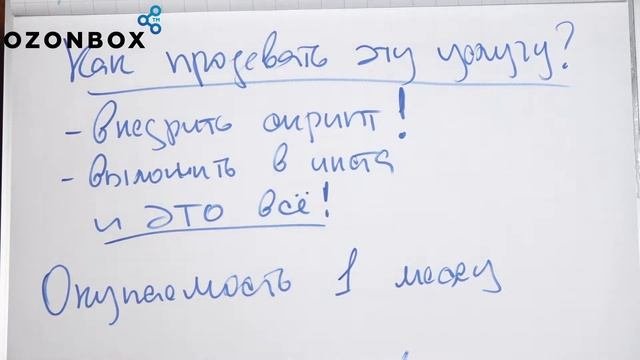 OZONBOX TM
Как продавать эту услугу?
- внедрить скрипт!
- выложить в инста
и это всё!
Окупаемость 1 месяц